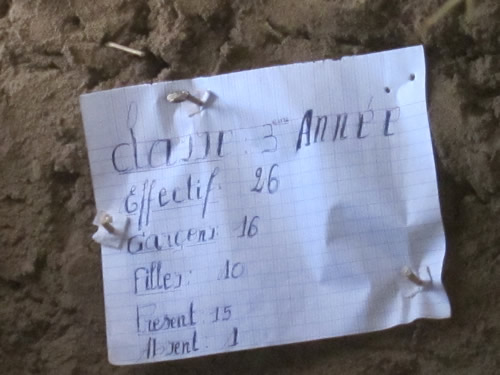 Classe : 3ème ANNéE
Effectif : 26
Garçons : 16
Filles : 10
Présent : 15
Absent : 1